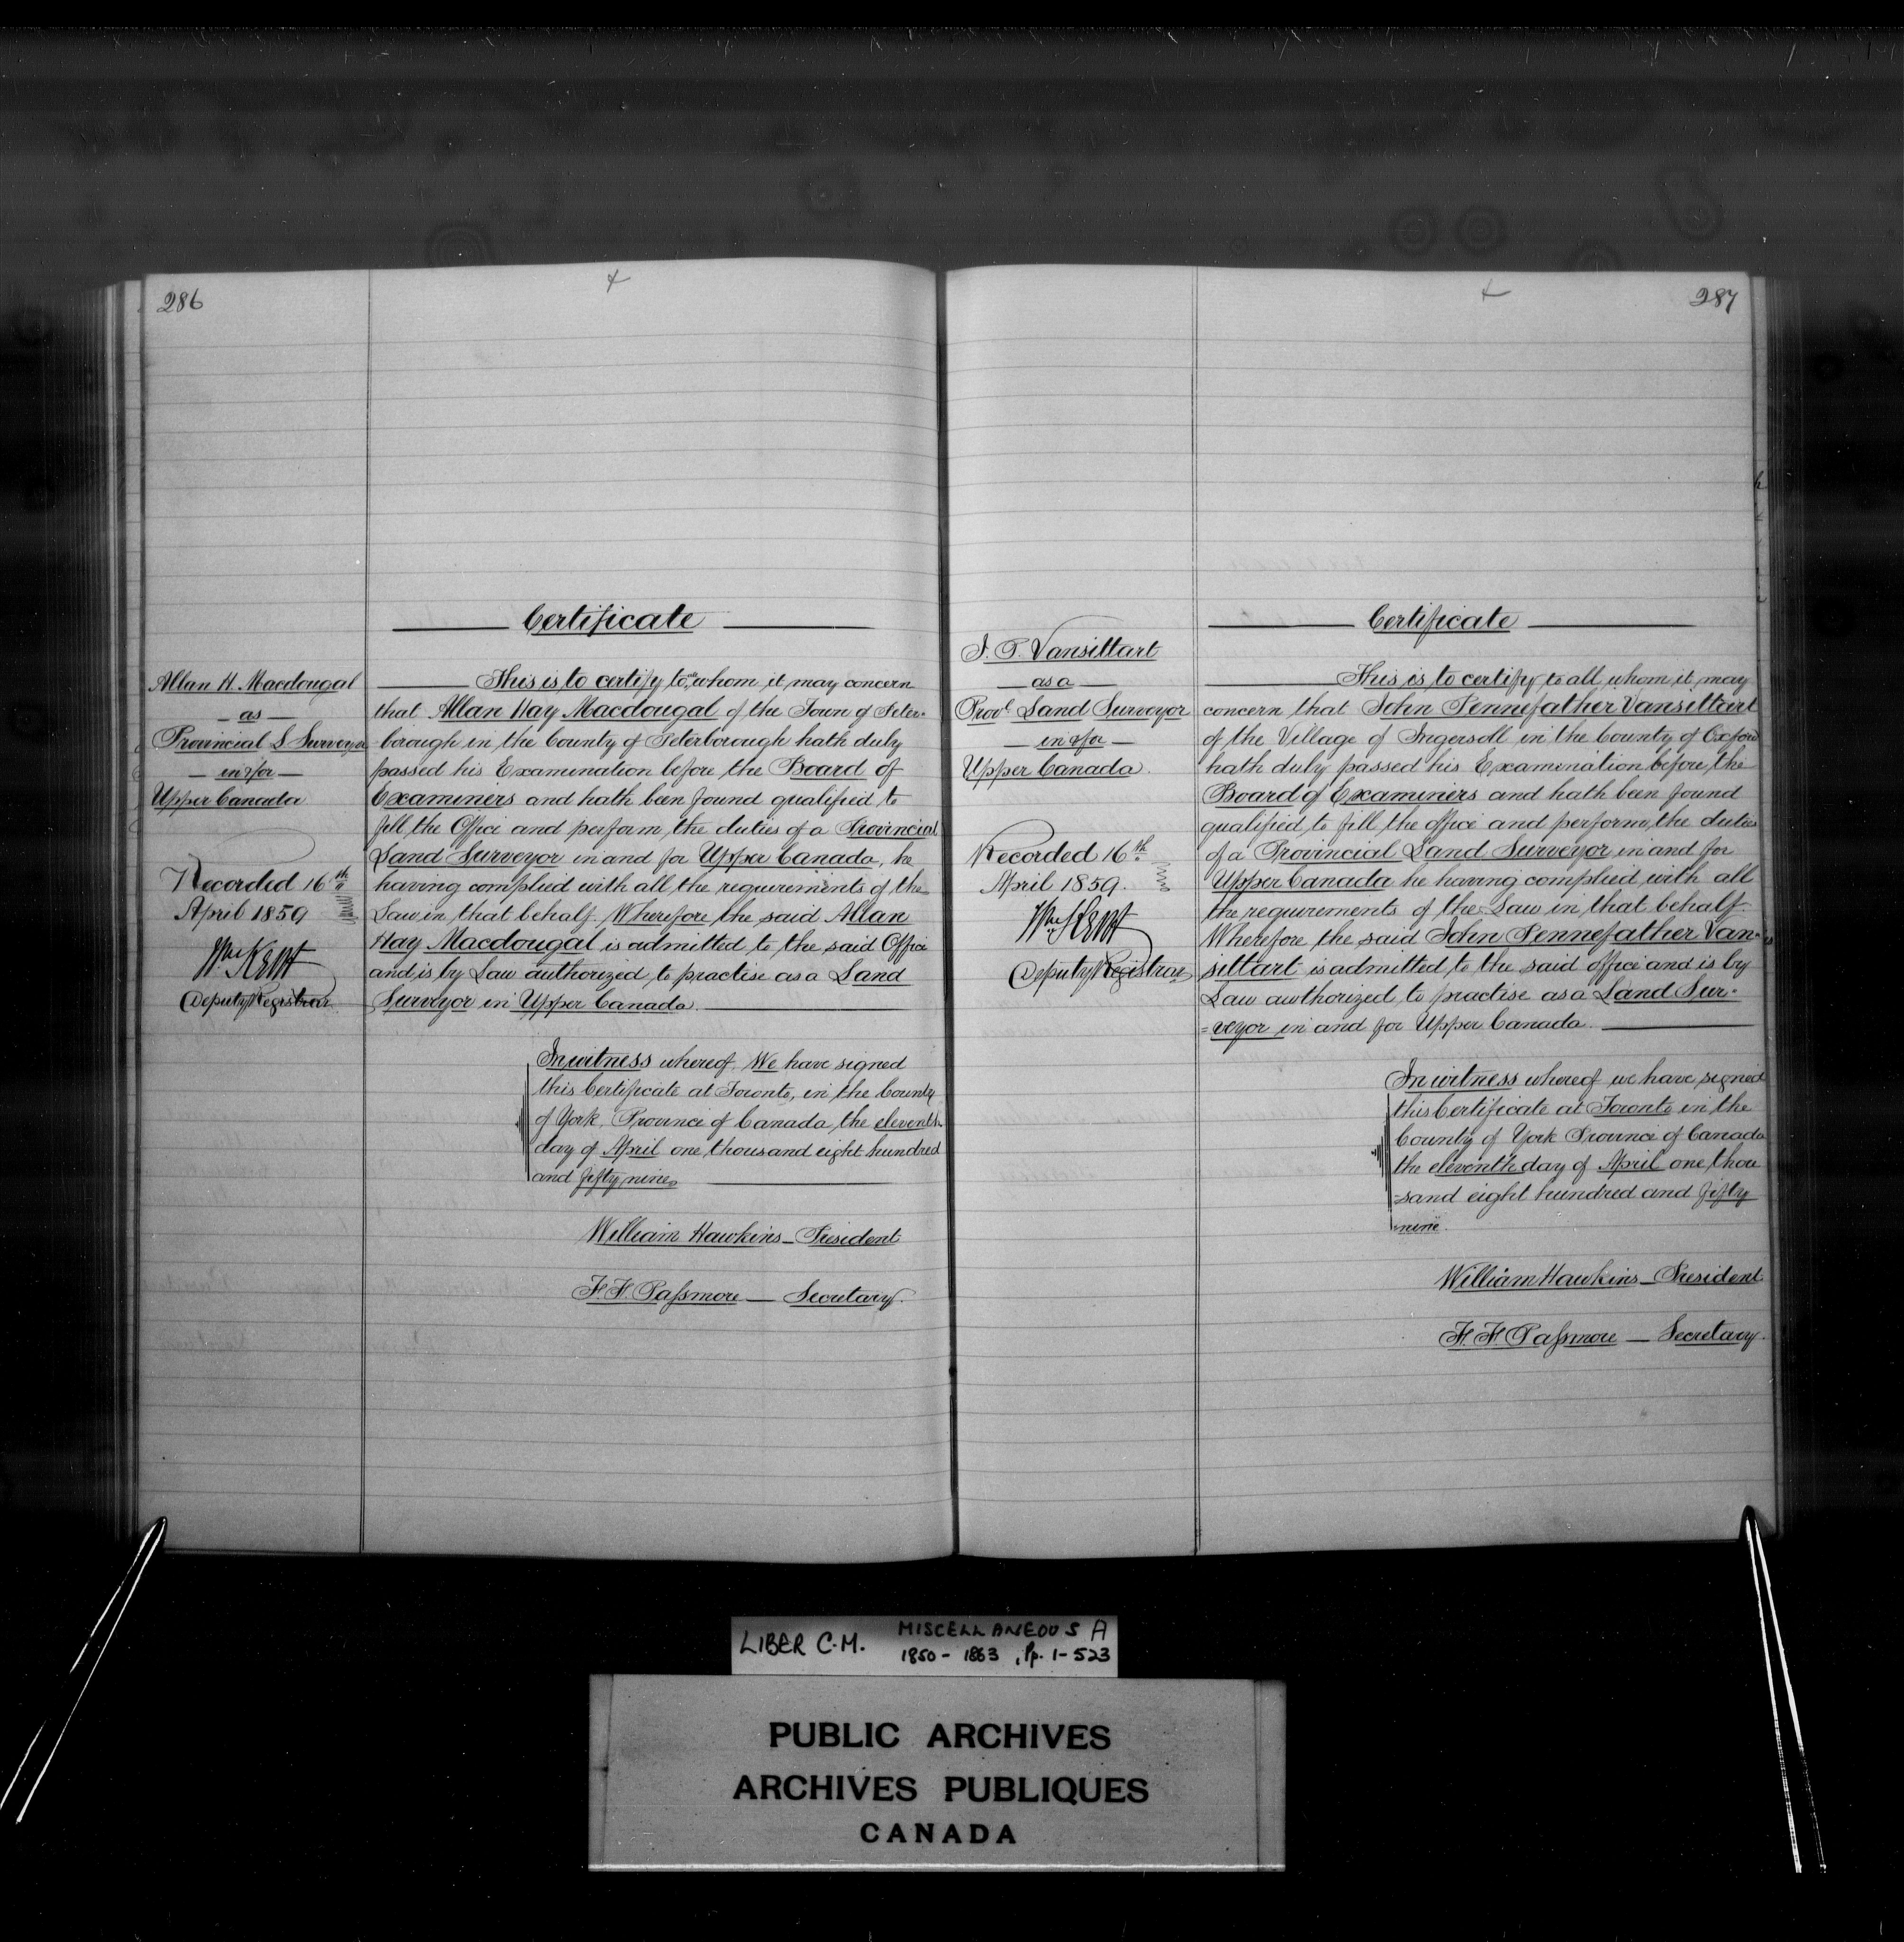 286
Certificate
Allan H. Macdougal
as
Provincial L Surveyor
in & for
Upper Canada
Recorded 16th
April 1859
Wm Kent
Deputy Registrar
This is to certify to all whom it may concern
that Allan Hay Macdougal of the Town of Peter-
borough in the County of Peterborough hath duly
passed his Examination before the Board of
Examiners and hath been found qualified to
fill the Office and perform the duties of a Provincial
Land Surveyor in and for Upper Canada, he
having complied with all the requirements of the
Law in that behalf. Wherefore the said Allan
Hay Macdougal is admitted to the said Office
and is by Law authorized to practise as a Land
Surveyor in Upper Canada.
In witness whereof We have signed
this Certificate at Toronto, in the County
of York, Province of Canada, the eleventh
day of April one thousand eight hundred
and fifty nine
William Hawkins - President
F. F. Passmore - Secretary.
287
Certificate
J. P. Vansittart
as a
Provl Land Surveyor
in & for
Upper Canada.
Recorded 16th
April 1859.
Wm Kent
Deputy Registrar
This is to certify to all whom it may
concern that John Pennefather Vansittart
of the Village of Ingersoll in the County of Oxford
hath duly passed his Examination before the
Board of Examiners and hath been found
qualified to fill the office and perform the duties
of a Provincial Land Surveyor in and for
Upper Canada he having complied with all
the requirements of the Law in that behalf.
Wherefore the said John Pennefather Van-
sittart is admitted to the said office and is by
Law authorized to practise as a Land Sur-
=veyor in and for Upper Canada.
In witness whereof we have signed
this Certificate at Toronto in the
County of York Province of Canada
the eleventh day of April one thou
-sand eight hundred and fifty
nine.
William Hawkins - President
F. F. Passmore - Secretary.
LIBER C.M. MISCELLANEOUS A
1850 - 1863, Pp. 1-523
PUBLIC ARCHIVES
ARCHIVES PUBLIQUES
CANADA